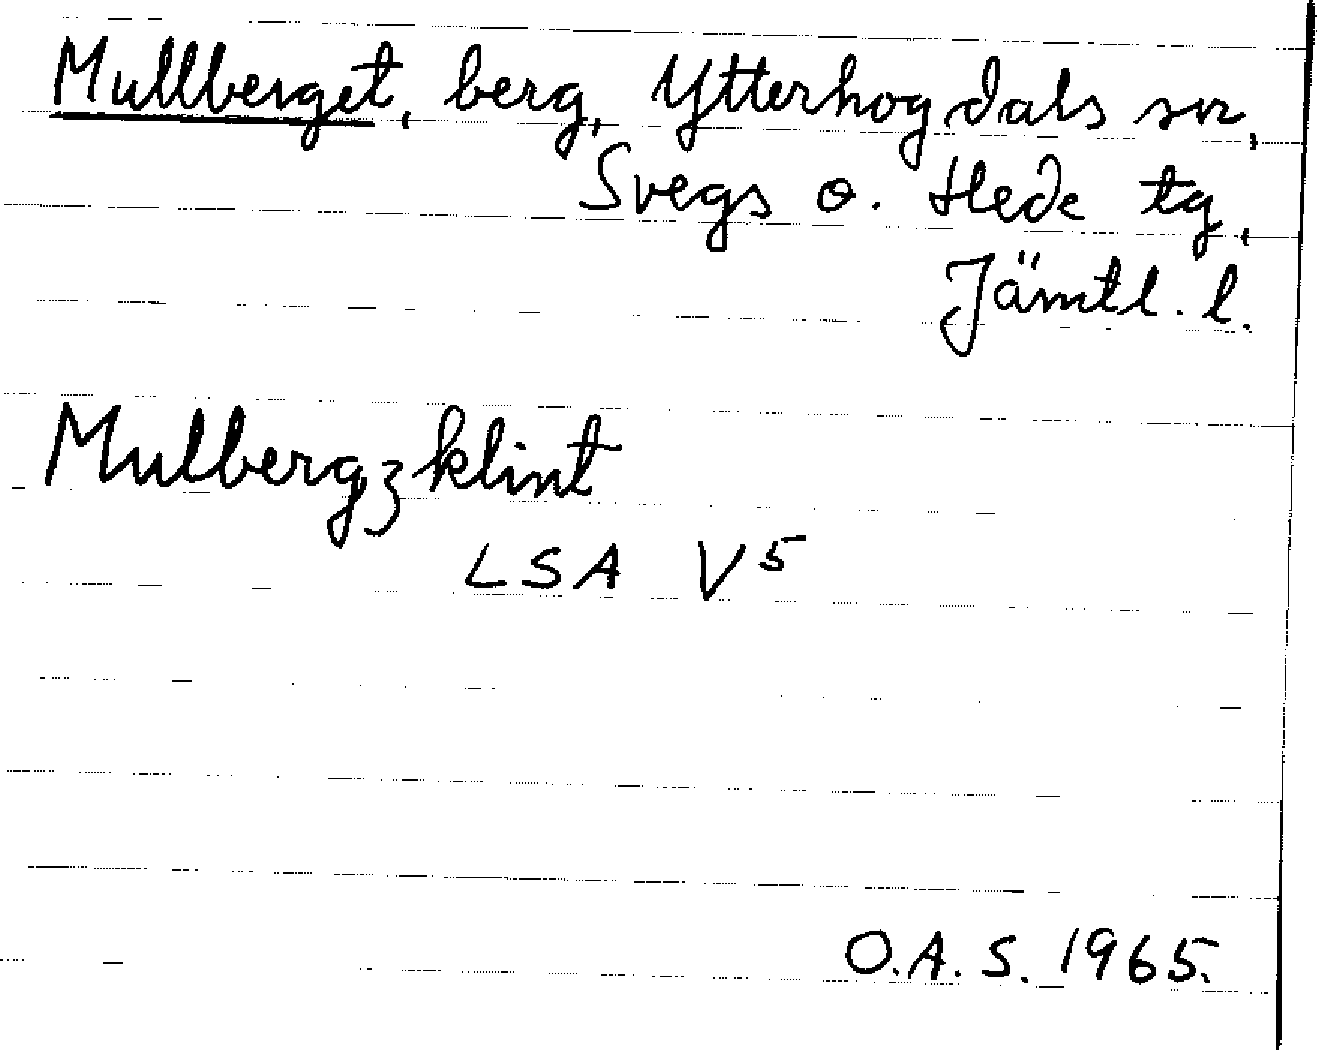 Mullberget, berg, Ytterhogdals sn,
Svegs o. Hede tg,
Jämtl. l.
Mulbergzklint
LSA V5
O.A.S. 1965.